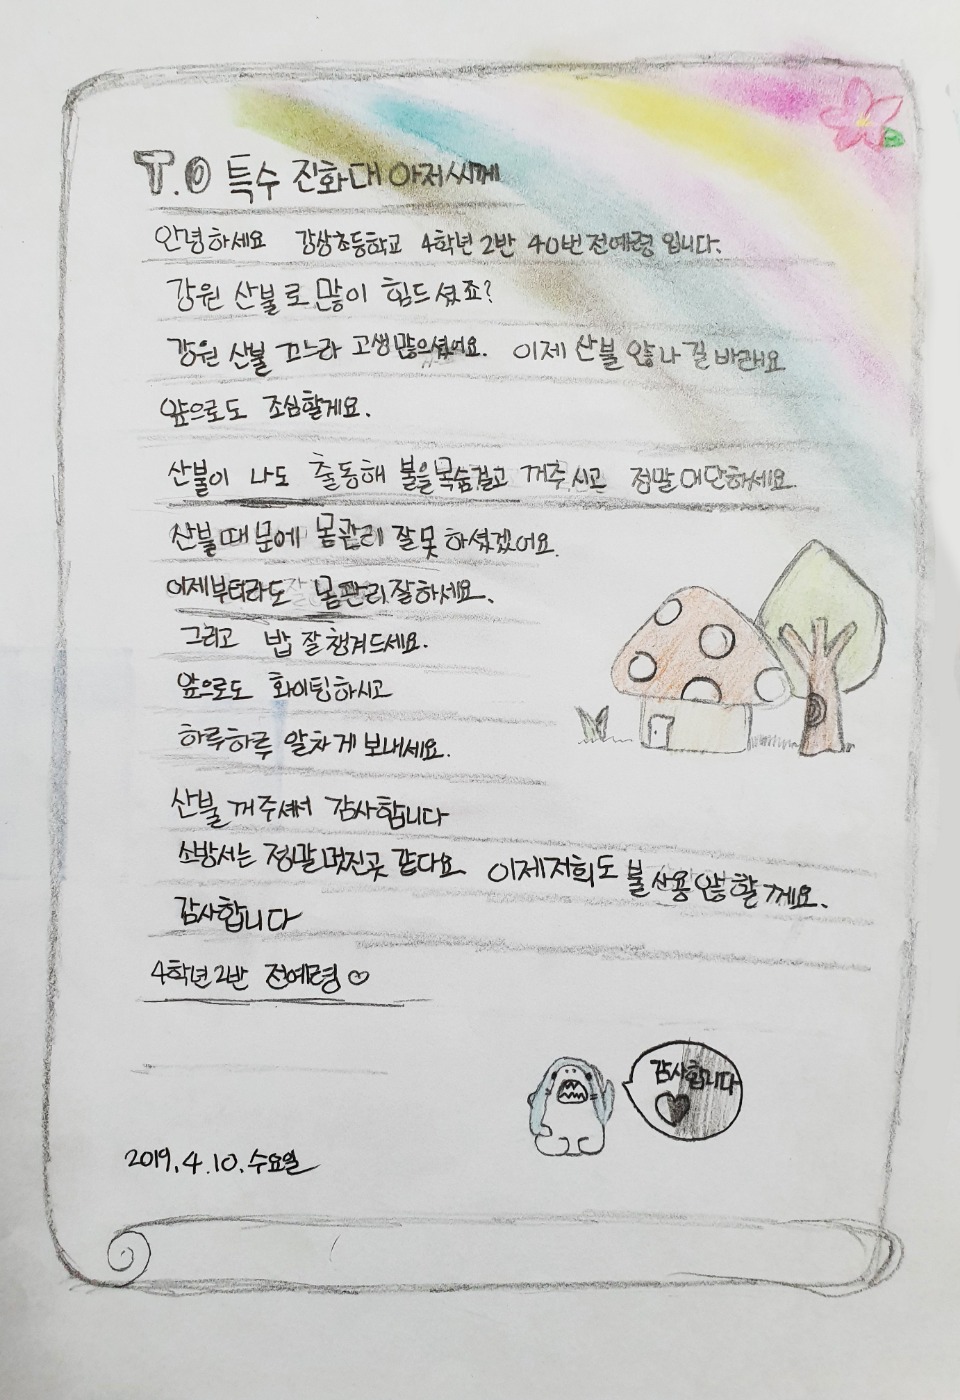 T.O 특수 진화대 아저씨께
안녕하세요 강상초등학교 4학년 2반 40번 전예령 입니다.
강원 산불로 많이 힘드셨죠?
강원 산불 끄느라 고생많으셨어요. 이제 산불 않나길 바래요
앞으로도 조심할게요.
산불이 나도 출동해 불을 목숨걸고 꺼주시고 정말 대단하세요.
산불때문에 몸관리 잘못 하셨겠어요.
이제부터라도 몸관리잘하세요.
그리고 밥 잘 챙겨드세요.
앞으로도 화이팅하시고
하루하루 알차게 보내세요.
산불 꺼주셔서 감사합니다
소방서는 정말 멋진곳 같다요 이제저희도 불 사용 않할께요.
감사합니다
4학년2반 전예령♡
감사합니다
2019.4.10.수요일